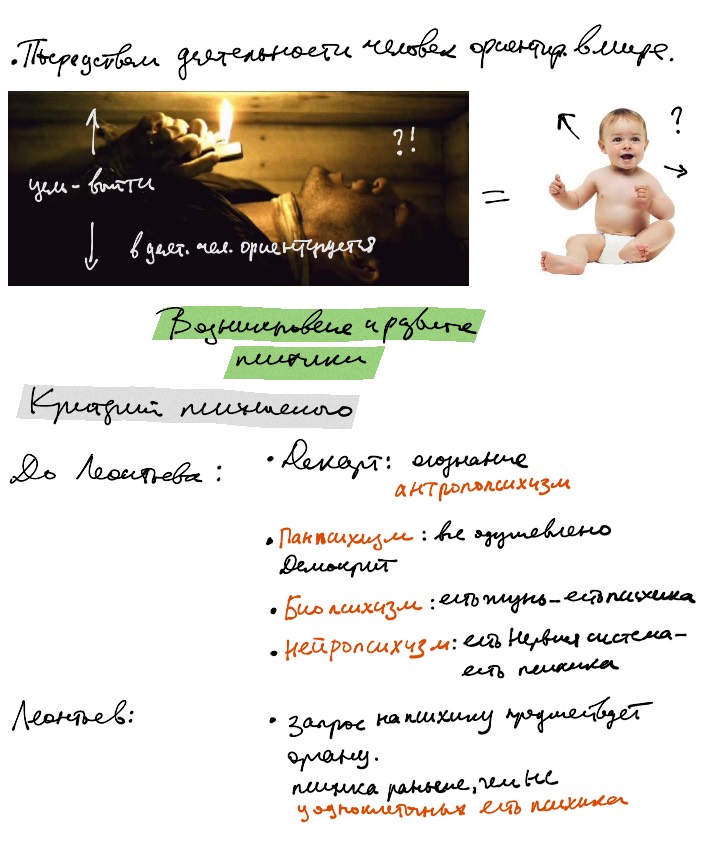 • Посредством деятельности человек ориентир. в мире.
?!
цель - выйти
в деят. чел. ориентируется
=
?
Возникновение и развитие
психики
Критерий психического
До Леонтьева:
• Декарт: сознание
антропопсихизм
• Панпсихизм: все одушевлено
Демокрит
• Биопсихизм: есть жизнь - есть психика
• Нейропсихизм: есть нервная система -
есть психика
Леонтьев:
• Запрос на психику предшествует
органу.
психика раньше, чем НС
у одноклеточных есть психика